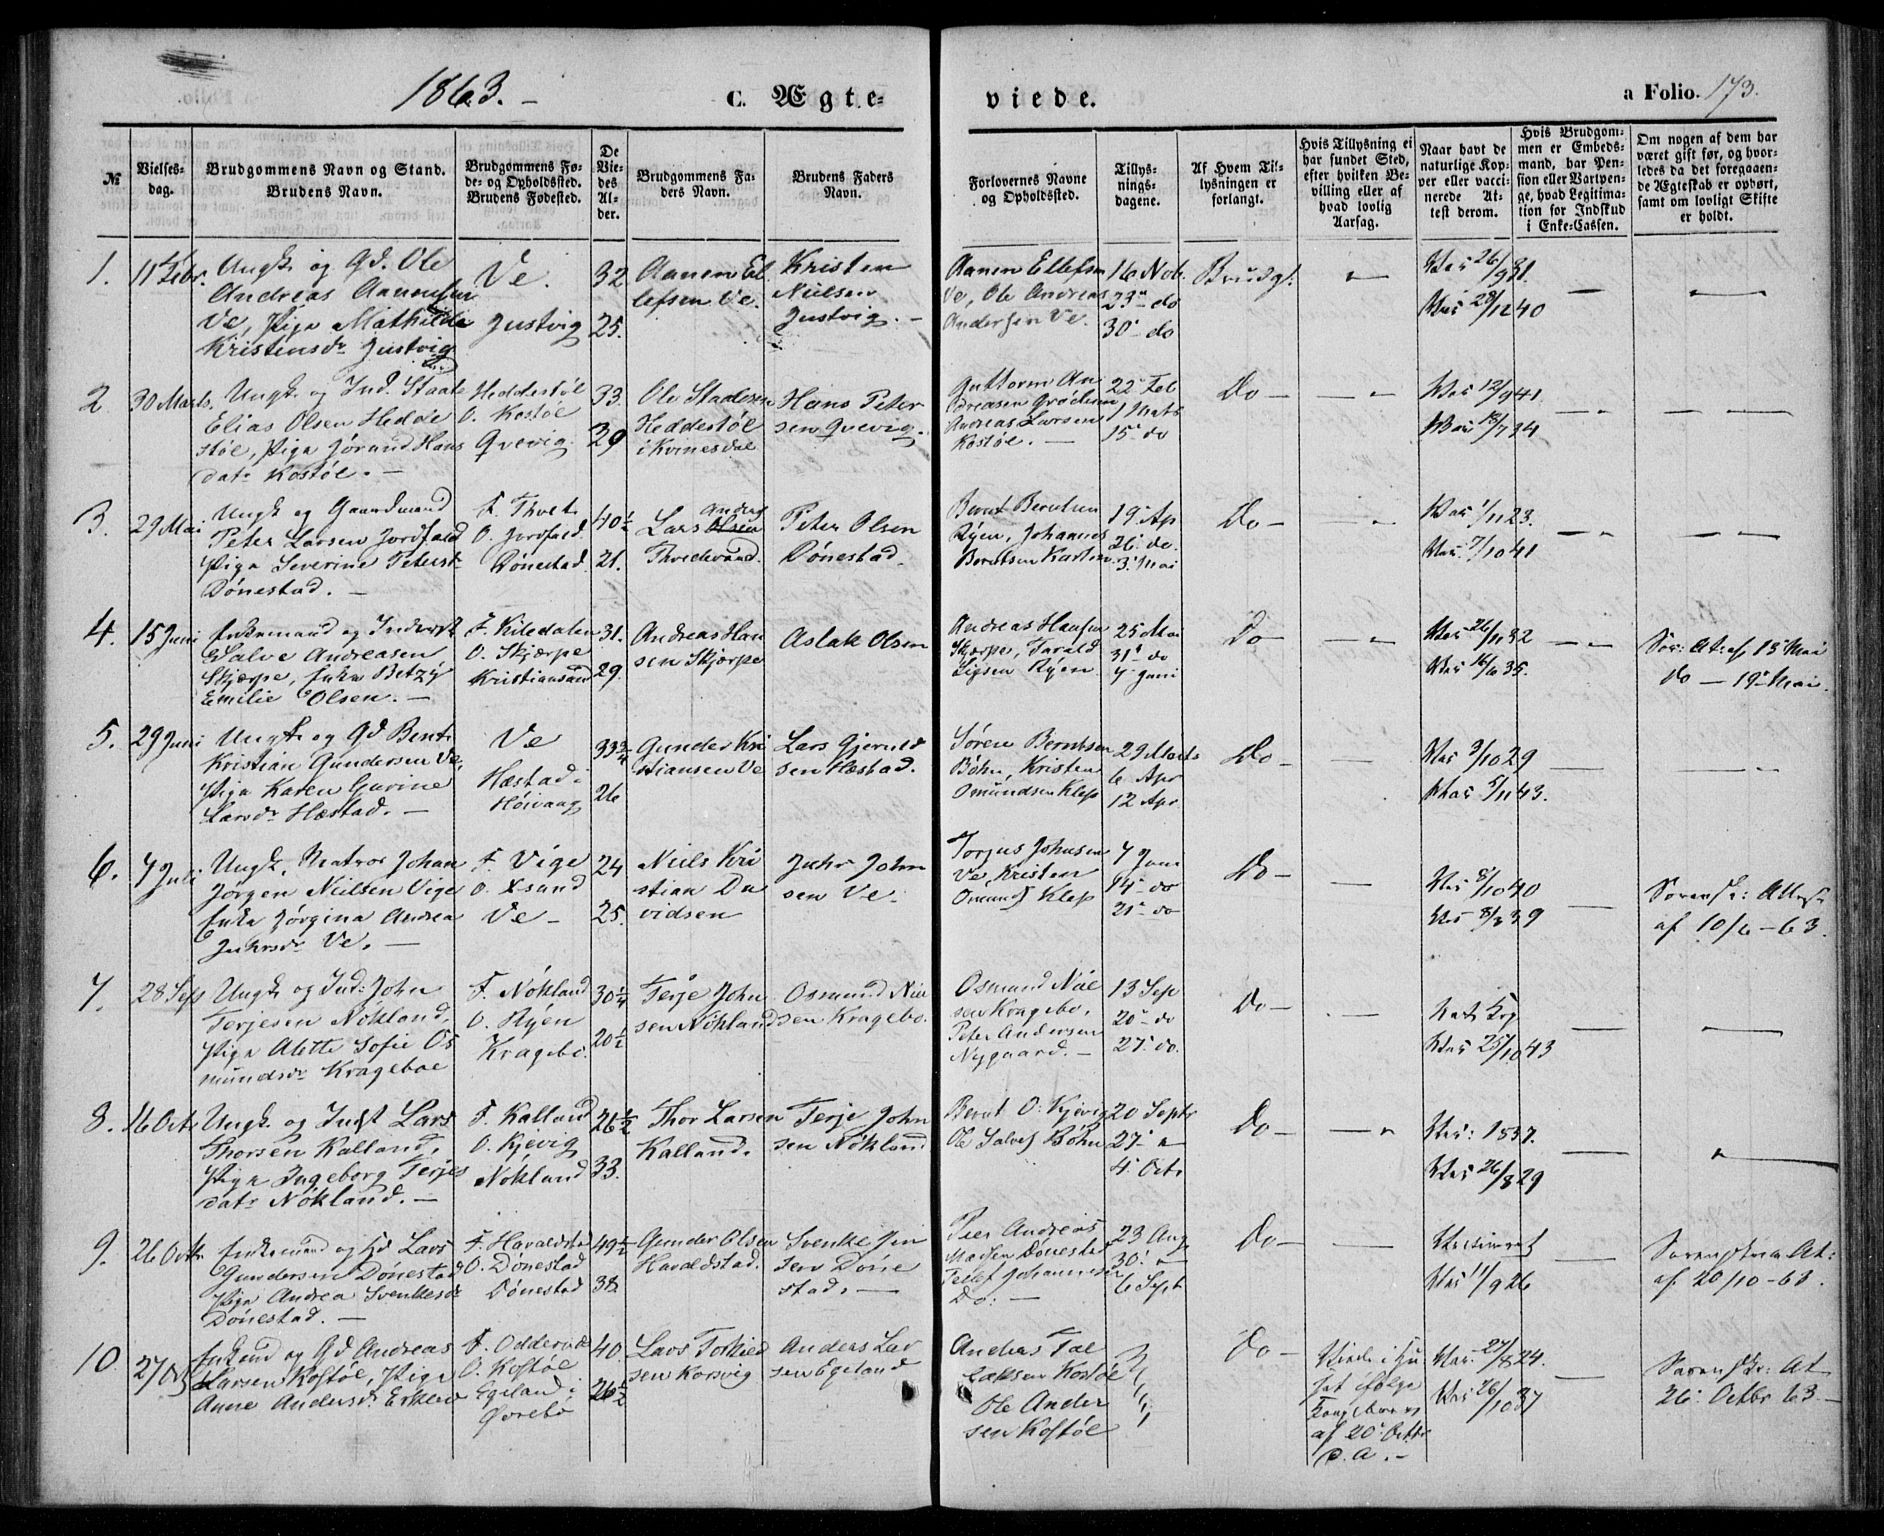 1863. –
C. Ægte-
viede.
a Folio. 173.
№
Vielses-
dag.
Brudgommens Navn og Stand.
Brudens Navn.
Brudgommens Fø-
de- og Opholdssted.
Brudens Fødested.
De
Vie-
des
Al-
der.
Brudgommens Fa-
ders Navn.
Brudens Faders
Navn.
Forlovernes Navne
og Opholdssted.
Tillys-
nings-
dagene.
Af Hvem Til-
lysningen er
forlangt.
Hvis Tillysning ei
har fundet Sted,
efter hvilken Be-
villing eller af
hvad lovlig
Aarsag.
Naar havt de
naturlige Kop-
per eller vacci-
nerede At-
test derom.
Hvis Brudgom-
men er Embeds-
mand, har Pen-
sion eller Vartpen-
ge, hvad Legitima-
tion for Indskud
i Enke-Cassen.
Om nogen af dem har
været gift før, og hvor-
ledes da det foregaaen-
de Ægteskab er ophørt,
samt om lovligt Skifte
er holdt.
1.
11 Febr.
Ungk. og Gd. Ole
Andreas Aanensen
Ve, Pige Mathilde
Kristensdr Justvig
Ve.
Justvig
32
25.
Aanen El
lefsen Ve.
Kristen
Nielsen
Justvig. –
Aanen Ellefsen
Ve, Ole Andreas
Andersen Ve.
16 Nov.
23 do
30 do
Brudg.
Vac 26/9 31.
Vac 29/12 40
2
30 Marts.
Ungk. og Ind. Staale
Elias Olsen Hedde
støl, Pige Jørand Hans
datr Kostøl. –
Heddestøl
O. Kostøl
Qvevig.
33.
29
Ole Staalesen
Heddestøl
i Kvinesdal
Hans Peter
sen Qvevig.
Guttorm An
dreasen
Andreas Larsen
Kostøl. –
22 Feb
1 Marts
15 do
Do –
Vac 12/9 41.
Vac 18/7 34
3.
29 Mai
Ungk. og Gaardmand
Peter Larsen Jordfald
Pige Severine Petersd.
Dønestad. –
F. Thvet
O. Jordfald.
Dønestad.
40½
21.
Lars Olsen
Peter Olsen
Dønestad.
Bernt Berntsen
Ryen, Johannes
Berntsen
19 Ap
26 do.
3 Mai
Do –
Vac 1/11 23.
Vac 7/10 41
4.
15 Juni
Enkemand og Inderst
Salve Andreasen
Skjærpe, Enke Betzy
Emilie Olsen. –
F. Kiledalen
O. Skjærpe
Kristiansand
31.
29.
Andreas Han
sen Skjærpe
Aslak Olsen
Andreas Hansen
Skjærpe, Tarald
Ryen
25 Mai
31 do
7 Juni
Do –
Vac 26/11 32
Vac 16/6 35.
Sor: At af 15 Mai
do – 19 Mai.
5.
29 Juni
Ungk. og Gd Bent
Kristian Gundersen Ve,
Pige Karen Gurine
Larsdr Hæstad. –
Ve
Hæstad
Høivaag
33¾
26
Gunder Kri
stiansen Ve
Lars Gjeruld
sen Hæstad.
Søren Berntsen
Bøhn, Kristen
Omundsen Klep
29 Marts
6 Apr
12 Apr
Do –
Vac 3/10 29
Vac 5/11 43.
6.
7 Juli
Ungk. Matros Johan
Jørgen Nielsen Vige
Enke Jørgina Andrea
Juhrsdr Ve. –
F. Vige
O. Xsand
Ve –
24
25.
Niels Kri
stian Da
vidsen
Juhr John
sen Ve.
Torjus Johnsen
Ve, Kristen
Omunds Klep
7 Juni
14 do
21 do
Do –
Vac 8/10 40
Vac 8/3 39
Sorensk: Attest
af 10/6 – 63.
7.
28 Sept
Ungk. og Ind: John
Terjesen Nøkland,
Pige Alette Sofie Os
mundsdr Krageboe
F. Nøkland
O. Ryen
Kragebo.
30¼
20½
Terje John
sen Nøkland
Osmund Niel
sen Kragebo.
Osmund Niel
sen Kragebo.
Peter Andersen
Nygaard. –
13 Sep
20 do
27 do.
Do –
Vac 25/10 43
8.
16 Octr
Ungk. og Indst Lars
Thorsen Kalland,
Pige Ingeborg Terjes
datr Nøkland. –
F. Kalland
O. Kjevig
Nøkland
26½
33.
Thor Larsen
Kalland.
Terje John
sen Nøkland
Bernt O: Kjevig
Ole Salves Bøhn
20 Septr
27 "
4 Octr
Do –
Vac: 1837.
Vac 26/8 29
9.
26 Octr
Enkemand og Gd Lars
Gundersen Dønestad
Pige Andrea Svenkesdr
Dønestad. –
F. Haraldstad
O. Dønestad
Dønestad
49½
38
Gunder Olsen
Haraldstad.
Svenke Jen
sen Døne
stad. –
Peer Andreas
Madsen Dønestad
Tellef Johannesen
Do: –
23 Aug
30 "
6 Sept
Do –
Vaccineret
Vac 11/9 26
Sorenskrn At:
af 20/10 – 63.
10.
27 Oct
Enkemd og Gd Andreas
Larsen Kostøl, Pige
Anne Andersdr
F. Odderøen
O. Kostøl
Egeland i
Øvrebø
40.
26½
Lars Torkild
sen Korsvig
Anders Lar
sen Egeland
Anders Tal
laksen Kostøl
Ole Ander
sen Kostøl
Do –
Viede i Hu
set ifølge
af 20 Octbr
d. A. –
Vac. 27/8 24.
Vac 26/10 37
Sorenskr: At
26 Octbr 63 –